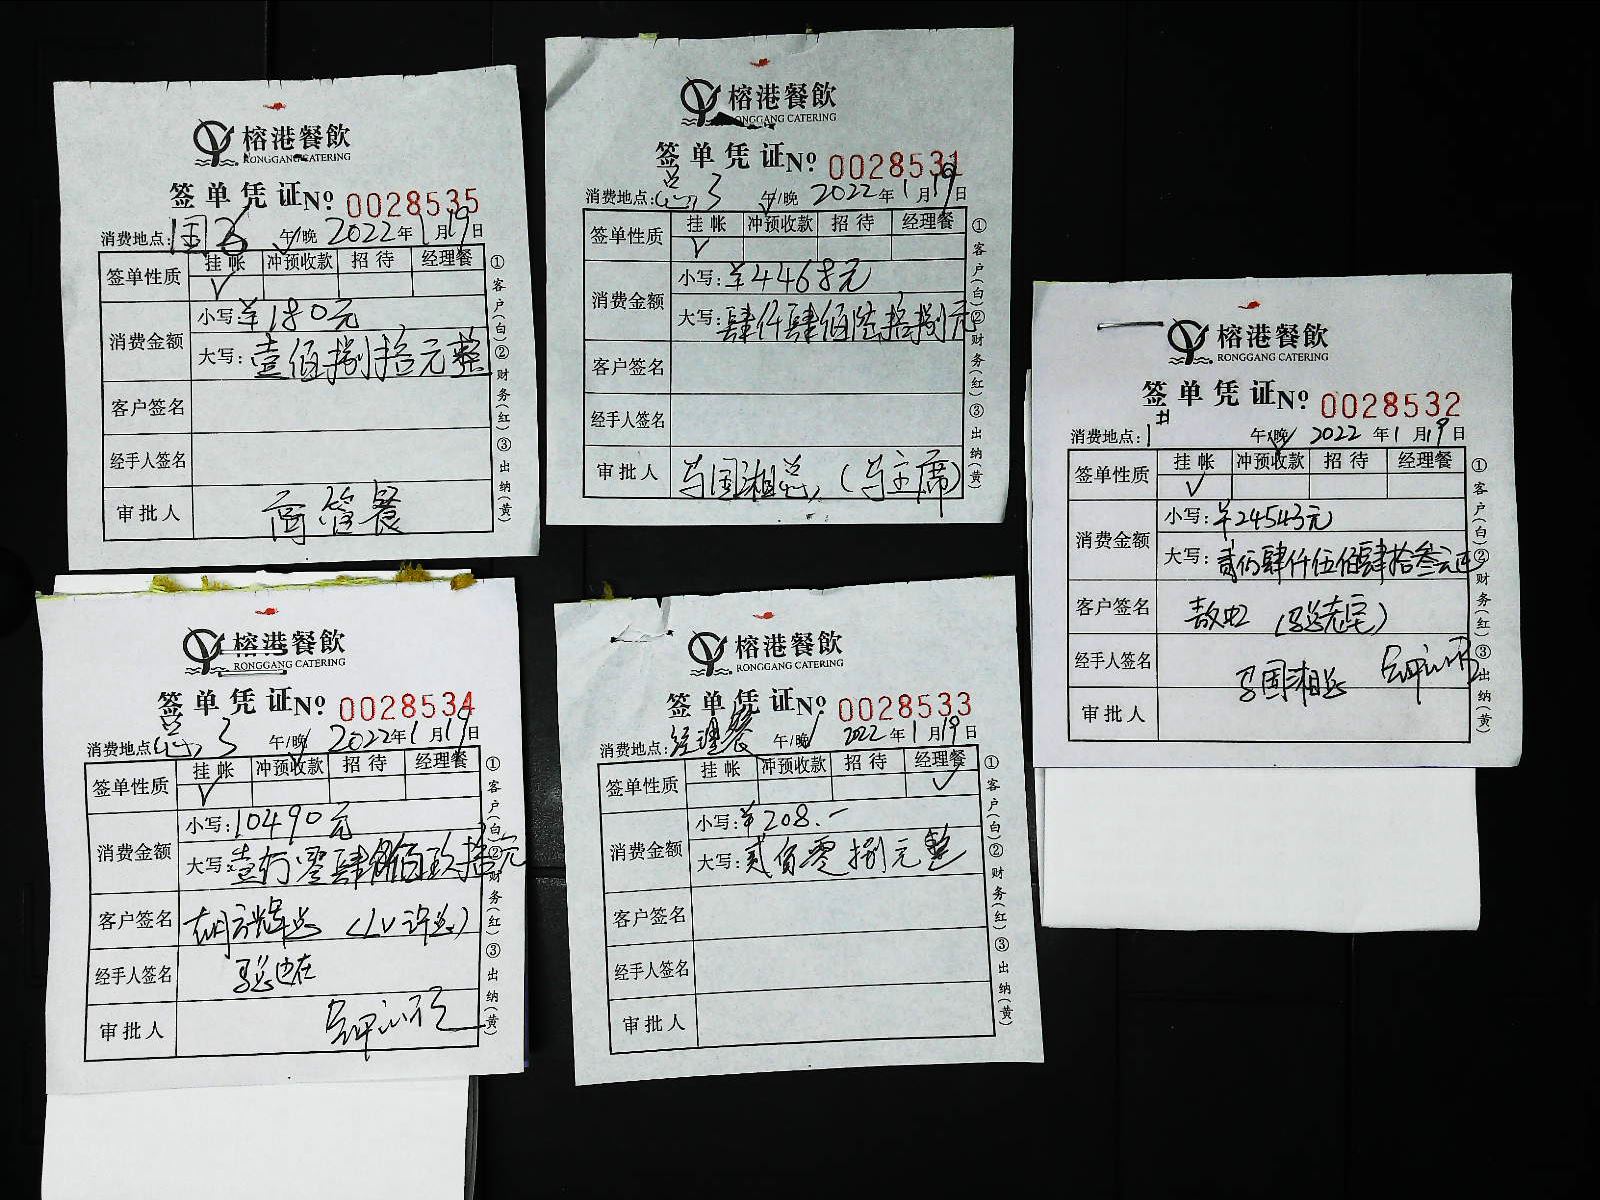 榕港餐飲
RONGGANG CATERING
签单凭证 Nº 0028535
消费地点: 午/晚 2022年1月19日
签单性质 挂帐 冲预收款 招待 经理餐
✓
消费金额 小写:¥180元
大写:壹佰捌拾元整
客户签名
经手人签名
审批人 商管餐
①客户(白)②财务(红)③出纳(黄)
榕港餐飲
RONGGANG CATERING
签单凭证 Nº 0028531
消费地点:总3 午/晚 2022年1月19日
签单性质 挂帐 冲预收款 招待 经理餐
✓
消费金额 小写:¥4468元
大写:肆仟肆佰陆拾捌元
客户签名
经手人签名
审批人 马国湘总(马主席)
①客户(白)②财务(红)③出纳(黄)
榕港餐飲
RONGGANG CATERING
签单凭证 Nº 0028532
消费地点:1# 午/晚 2022年1月19日
签单性质 挂帐 冲预收款 招待 经理餐
✓
消费金额 小写:¥24543元
大写:贰万肆仟伍佰肆拾叁元正
客户签名 (马总老宅)
经手人签名 马国湘总
审批人
①客户(白)②财务(红)③出纳(黄)
榕港餐飲
RONGGANG CATERING
签单凭证 Nº 0028534
消费地点:总3 午/晚 2022年1月19日
签单性质 挂帐 冲预收款 招待 经理餐
✓
消费金额 小写:10490元
大写:壹万零肆佰玖拾元
客户签名 胡志辉总 (LV许总)
经手人签名 马总也在
审批人
①客户(白)②财务(红)③出纳(黄)
榕港餐飲
RONGGANG CATERING
签单凭证 Nº 0028533
消费地点:经理餐 午/晚 2022年1月19日
签单性质 挂帐 冲预收款 招待 经理餐
✓
消费金额 小写:¥208.-
大写:贰佰零捌元整
客户签名
经手人签名
审批人
①客户(白)②财务(红)③出纳(黄)